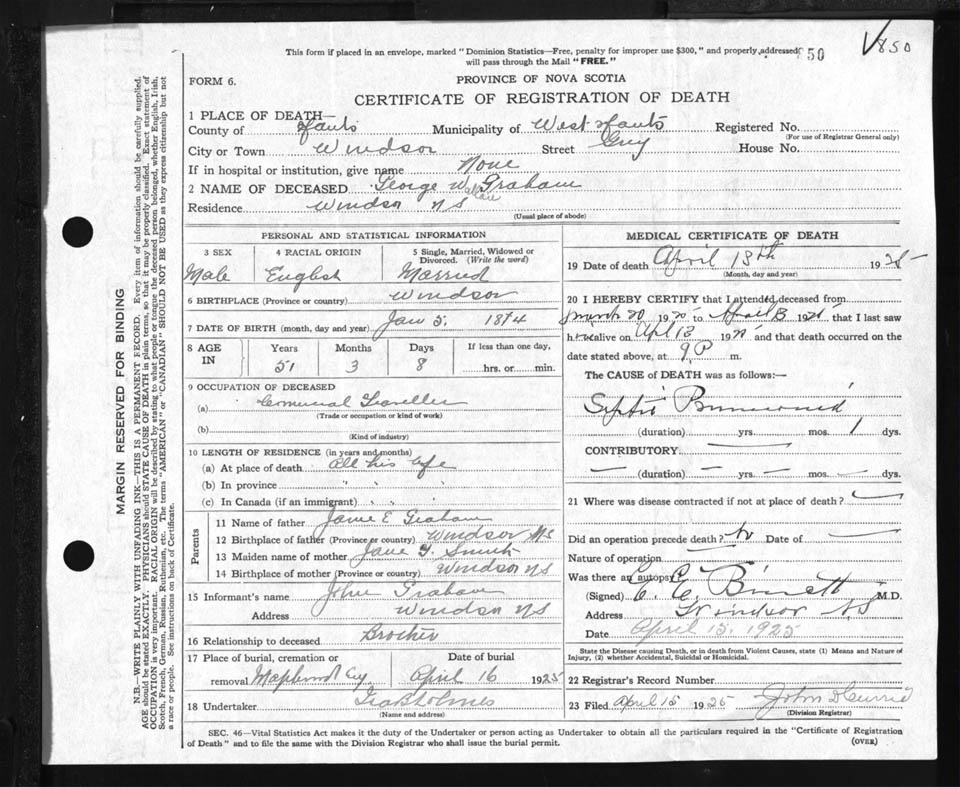 This form if placed in an envelope, marked "Dominion Statistics—Free, penalty for improper use $300," and properly addressed
will pass through the Mail "FREE."
850
FORM 6.
PROVINCE OF NOVA SCOTIA
CERTIFICATE OF REGISTRATION OF DEATH
1 PLACE OF DEATH—
County of Hants Municipality of West Hants Registered No.
(For use of Registrar General only)
City or Town Windsor Street Grey House No.
If in hospital or institution, give name None
2 NAME OF DECEASED George Wallace Graham
Residence Windsor NS
(Usual place of abode)
PERSONAL AND STATISTICAL INFORMATION
3 SEX 4 RACIAL ORIGIN 5 Single, Married, Widowed or
Divorced. (Write the word)
Male English Married
6 BIRTHPLACE (Province or country) Windsor
7 DATE OF BIRTH (month, day and year) Jan 5. 1874
8 AGE IN Years Months Days If less than one day,
51 3 8 hrs. or min.
9 OCCUPATION OF DECEASED
(a) Comercial Traveller
(Trade or occupation or kind of work)
(b)
(Kind of industry)
10 LENGTH OF RESIDENCE (in years and months)
(a) At place of death All his life
(b) In province " " "
(c) In Canada (if an immigrant) " " "
Parents
11 Name of father E Graham
12 Birthplace of father (Province or country) Windsor NS
13 Maiden name of mother Jane Smith
14 Birthplace of mother (Province or country) Windsor NS
15 Informant's name John Graham
Address Windsor NS
16 Relationship to deceased Brother
17 Place of burial, cremation or Date of burial
removal Maplewood Cey April 16 1925
18 Undertaker
(Name and address)
MEDICAL CERTIFICATE OF DEATH
19 Date of death April 13th 1925
(Month, day and year)
20 I HEREBY CERTIFY that I attended deceased from
March 20 1925 to April 13 1925 that I last saw
him alive on Apl 13 1925 and that death occurred on the
date stated above, at 9 P m.
The CAUSE of DEATH was as follows:—
Septic Pneumonia
(duration) yrs. mos. 1 dys.
CONTRIBUTORY —
— (duration) — yrs. — mos. — dys.
21 Where was disease contracted if not at place of death? —
Did an operation precede death? No Date of —
Nature of operation
Was there an autopsy?
(Signed) M.D.
Address Windsor NS
Date April 15. 1925
State the Disease causing Death, or in death from Violent Causes, state (1) Means and Nature of
Injury, (2) whether Accidental, Suicidal or Homicidal.
22 Registrar's Record Number
23 Filed April 15 1925 John D Currie
(Division Registrar)
SEC. 46—Vital Statistics Act makes it the duty of the Undertaker or person acting as Undertaker to obtain all the particulars required in the "Certificate of Registration
of Death" and to file the same with the Division Registrar who shall issue the burial permit.
(OVER)
MARGIN RESERVED FOR BINDING
N.B.—WRITE PLAINLY WITH UNFADING INK—THIS IS A PERMANENT RECORD. Every item of information should be carefully supplied.
AGE should be stated EXACTLY. PHYSICIANS should STATE CAUSE OF DEATH in plain terms, so that it may be properly classified. Exact statement of
OCCUPATION is very important. RACIAL ORIGIN will be described by stating to what people or tongue the deceased person belonged, whether English, Irish,
Scotch, French, German, Russian, Ruthenian, etc. The terms "AMERICAN" or "CANADIAN" SHOULD NOT BE USED as they express citizenship but not
a race or people. See instructions on back of Certificate.